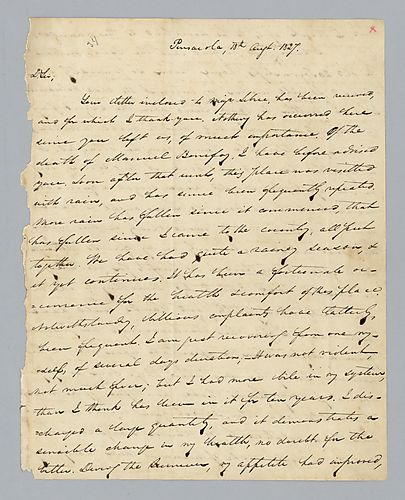 24
x
Pensacola, 18th Augt. 1827.
D Sir,
Your letter inclosed to has been received,
and for which I thank you. Nothing has occurred here
since you left us, of much importance. Of the
death of Manuel Bonifay, I have before advised
you. Soon after that event, this place was visited
with rain, and has since been frequently repeated.
More rain has fallen since it commenced than
has fallen since I came to the country, all put
together. We have had quite a rainey season, &
it yet continues. It has been a fortunate oc-
currence for the health & comfort of this place
Notwithstanding, billious complaints have latterly
been frequent. I am just recovering from one my-
self, of several days duration. It was not violent
not much fever; but I had more bile in my system,
than I think has been in it for ten years. I dis-
charged a large quantity, and it demonstrates a
sensible change in my health, no doubt for the
better. During the Summer, my appetite had improved,